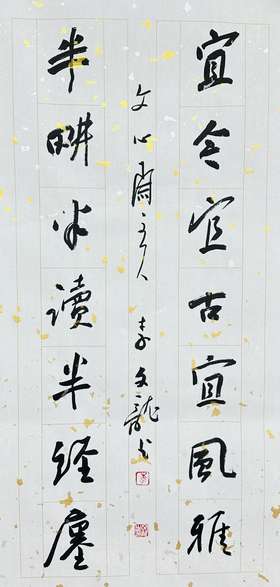 宜今宜古宜風雅
半畊半讀半經廛
文心主人 李文龍书